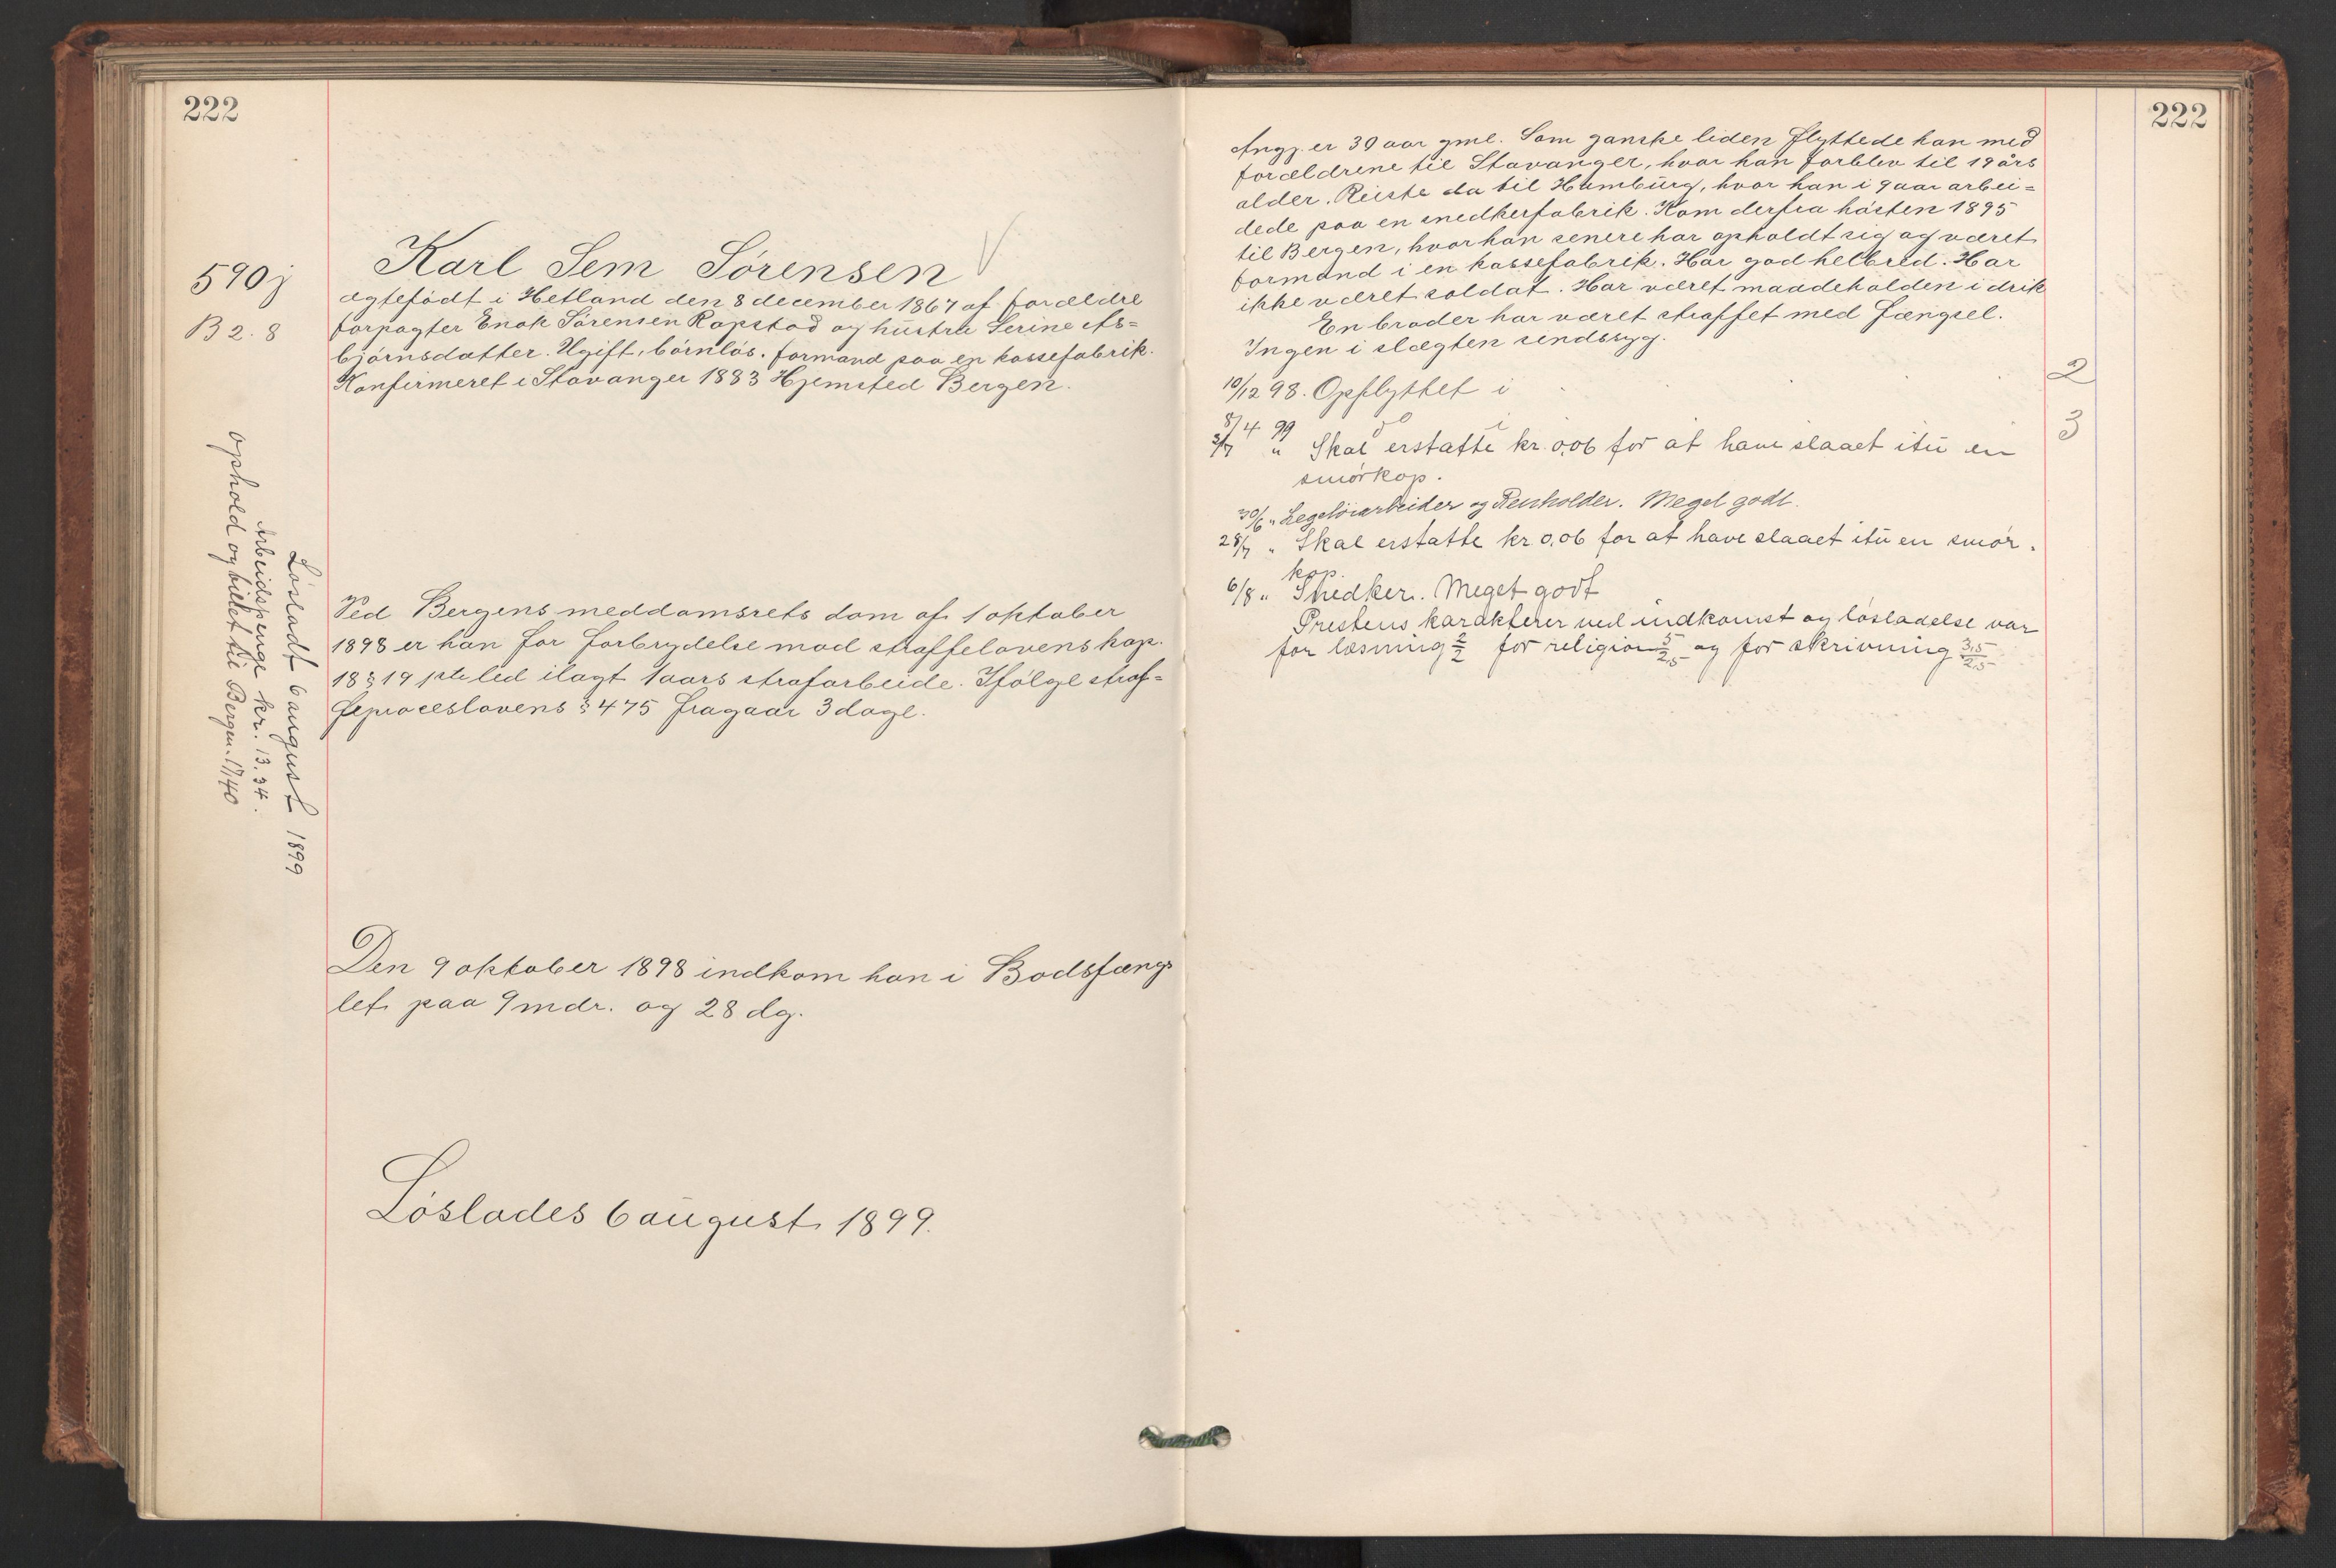 222
590j
B 2. 8
Karl Sem Sörensen V
ægtefödt i Hetland den 8 december 1867 af forældre
forpagter Enok Sörensen Rapstad og hustru Serine As-
björnsdatter. Ugift, börnlös. formand paa en kassefabrik.
Konfirmeret i Stavanger 1883 Hjemsted Bergen.
Lösladt 6 august 1899
Arbeidspenge kr. 13.34.
ophold og billet til Bergen. 17/40
Ved Bergens meddomsrets dom af 1 oktober
1898 er han for forbrydelse mod straffelovens kap.
18 § 19 1ste led ilagt 1 aars strafarbeide. Ifölge straf-
feproceslovens § 475 fragaar 3 dage.
Den 9 oktober 1898 indkom han i Bodsfæng-
let paa 9 mdr. og 28 dg.
Löslades 6 august 1899.
222
Angj. er 30 aar gml. Som ganske liden flyttede han med
forældrene til Stavanger, hvor han forblev til 19 års
alder. Reiste da til Hamburg, hvor han i 9 aar arbei-
dede paa en snedkerfabrik. Kom derfra hösten 1895
til Bergen, hvor han senere har opholdt sig og været
formand i en kassefabrik. Har god helbred. Har
ikke været soldat. Har været maadeholden i drik
En broder har været straffet med fængsel.
Ingen i slægten sindssyg.
10/12 98. Opflyttet i 2
8/4 99 do i 3
3/7 " Skal erstatte kr. 0,06 for at have slaaet itu en
smörkop.
30/6 " Legetöiarbeider og Renholder. Meget godt.
28/7 " Skal erstatte kr 0,06 for at have slaaet itu en smör-
kop.
6/8 " Snedker. Meget godt
Prestens karakterer ved indkomst og lösladelse var
for læsning 2/2 for religion 3/2,5 og for skrivning 3,5/2,5